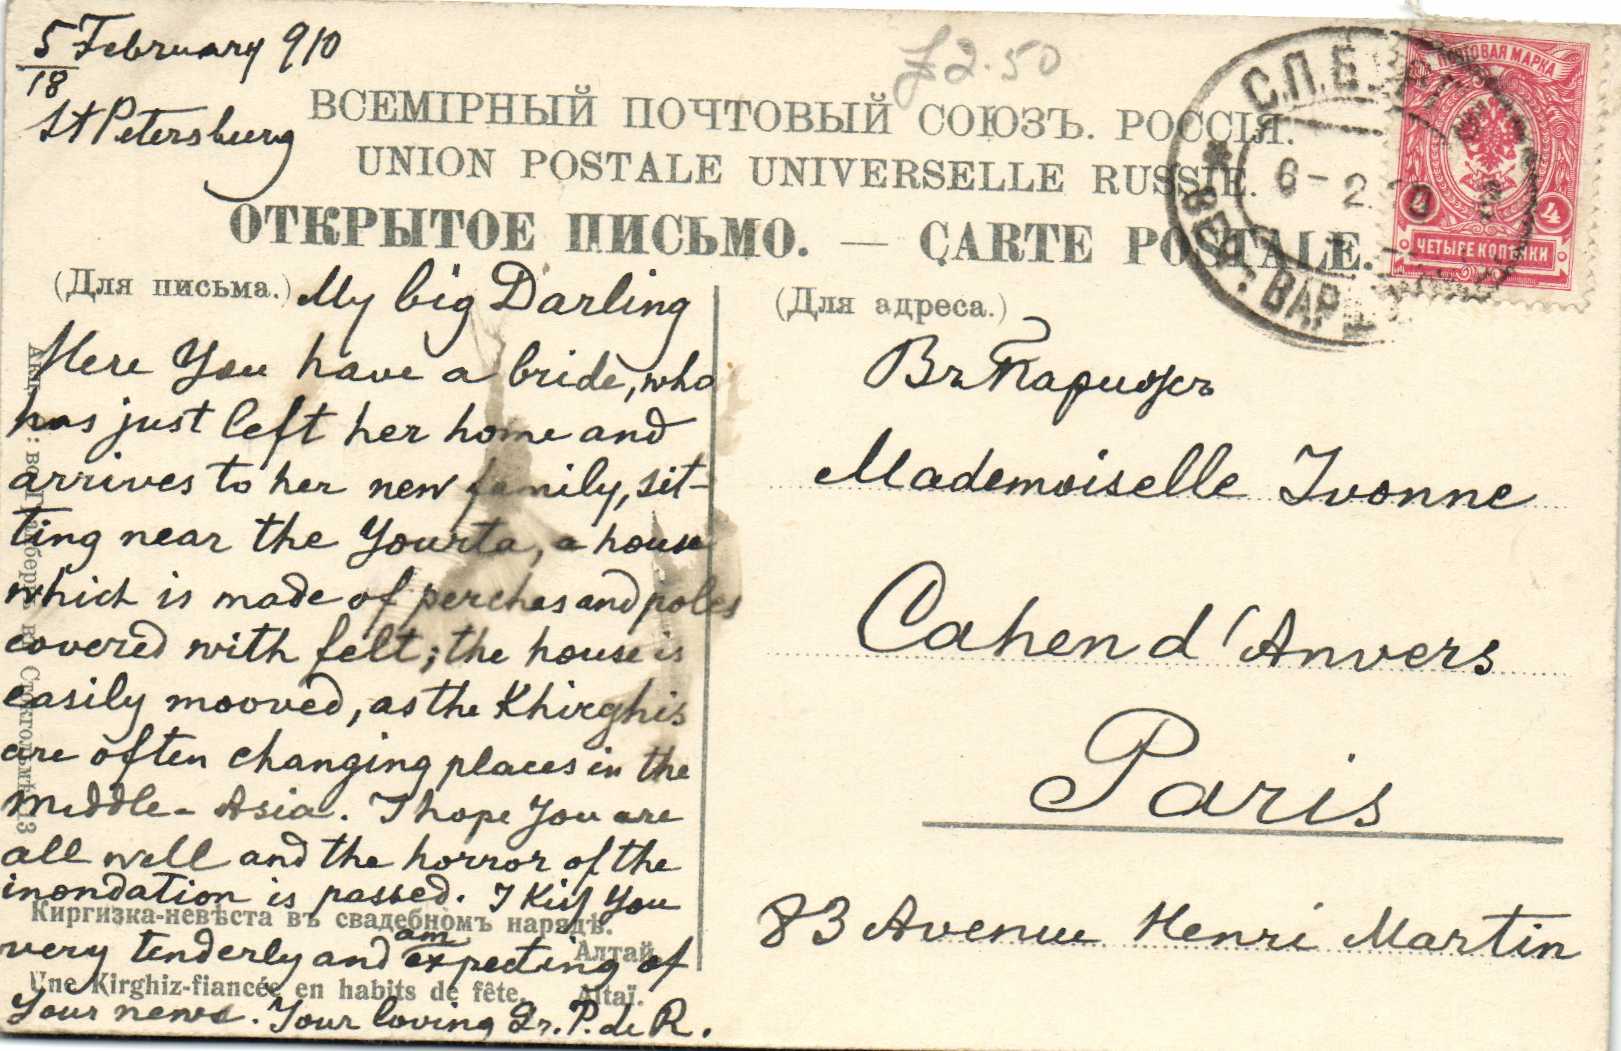 5/18 February 910
St Petersburg
£2.50
ВСЕМІРНЫЙ ПОЧТОВЫЙ СОЮЗЪ. РОССІЯ.
UNION POSTALE UNIVERSELLE RUSSIE.
ОТКРЫТОЕ ПИСЬМО. — CARTE POSTALE.
С.П.Б.
6-2 10
ВАРШ
ПОЧТОВАЯ МАРКА
4
ЧЕТЫРЕ КОПѢЙКИ
(Для письма.)
My big Darling
Here You have a bride, who
has just left her home and
arrives to her new family, sit-
ting near the Yourta, a house
which is made of perches and poles
covered with felt; the house is
easily mooved, as the Khirghis
are often changing places in the
Middle-Asia. I hope You are
all well and the horror of the
inondation is passed. I kiss You
very tenderly and am expecting of
Your news. Your loving Gr. P. de R.
Киргизка-невѣста въ свадебномъ нарядѣ.
Алтай.
Une Kirghiz-fiancée en habits de fête. Altaï.
(Для адреса.)
Въ Парижъ
Mademoiselle Ivonne
Cahen d'Anvers
Paris
83 Avenue Henri Martin